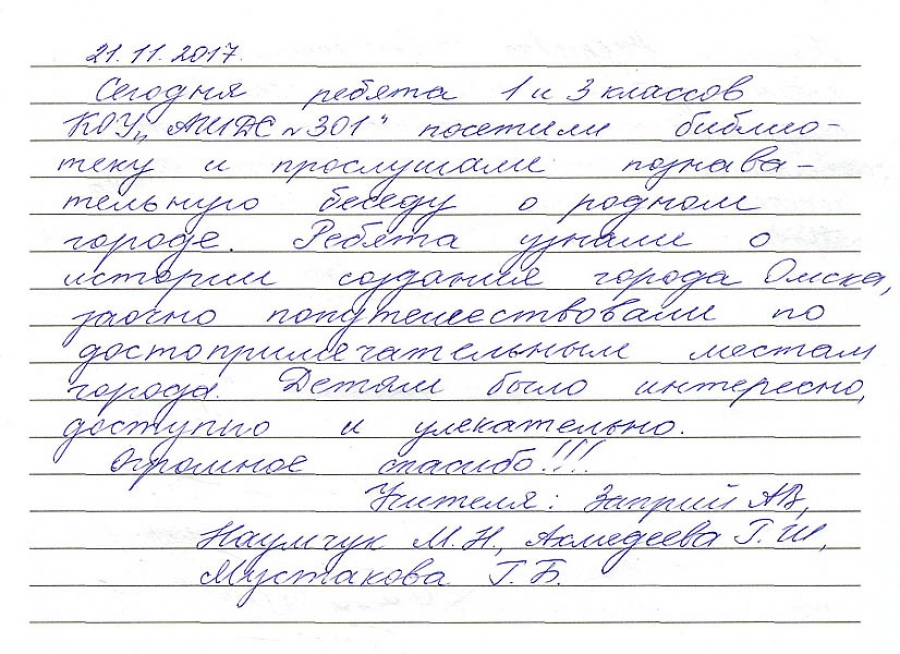 21.11.2017.
Сегодня ребята 1 и 3 классов
КОУ „АШДС № 301" посетили библио-
теку и прослушали познава-
тельную беседу о родном
городе. Ребята узнали о
истории создания города Омска,
заочно попутешествовали по
достопримечательным местам
города. Детям было интересно,
доступно и увлекательно.
Огромное спасибо!!!
Учителя: Заприй А.В,
Наумчук М.Н., Ахмедеева Г.Ш,
Мустакова Г.Б.